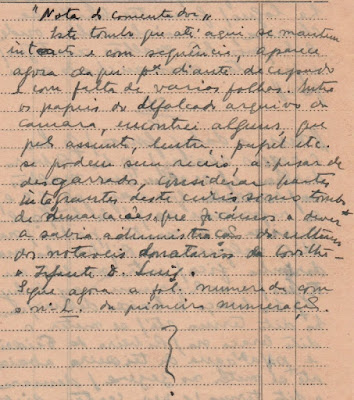 "Nota do comentador"
Este tombo que até aqui se manteve
intacto e com sequência, aparece
agora daqui pª diante decepado
e com falta de varios folhos. Entre
os papeis do desfalcado arquivo da
camara, encontrei alguns, que
pelo assunto, lentra, papel etc.
se podem sem receio, apesar de
desgarrados, considerar partes
integrantes deste curiosissimo tombo
de demarcações que ficámos a dever
a sabia administração do
dos notaveis donatarios da Covilhã
- Infante D. Luiz.
Segue agora a fol. numerada com
o nº L. da primeira numeração.